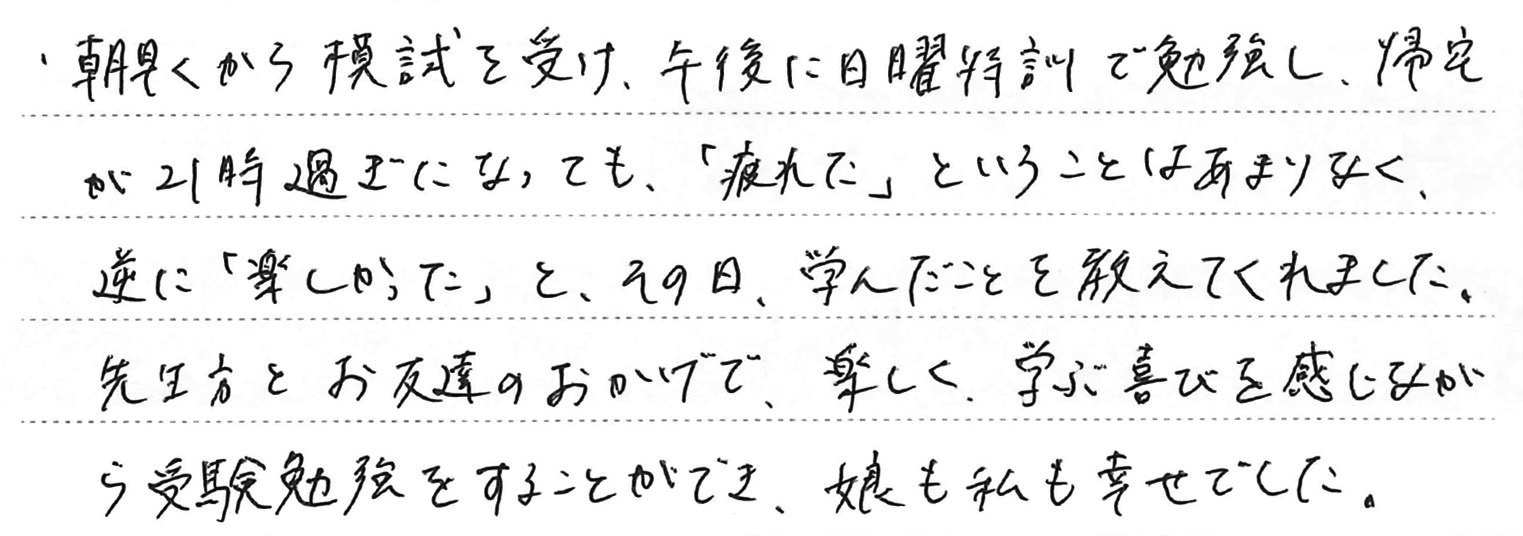 ・朝早くから模試を受け、午後に日曜特訓で勉強し、帰宅
が21時過ぎになっても、「疲れた」ということはあまりなく、
逆に「楽しかった」と、その日、学んだことを教えてくれました。
先生方とお友達のおかげで、楽しく、学ぶ喜びを感じなが
ら受験勉強をすることができ、娘も私も幸せでした。